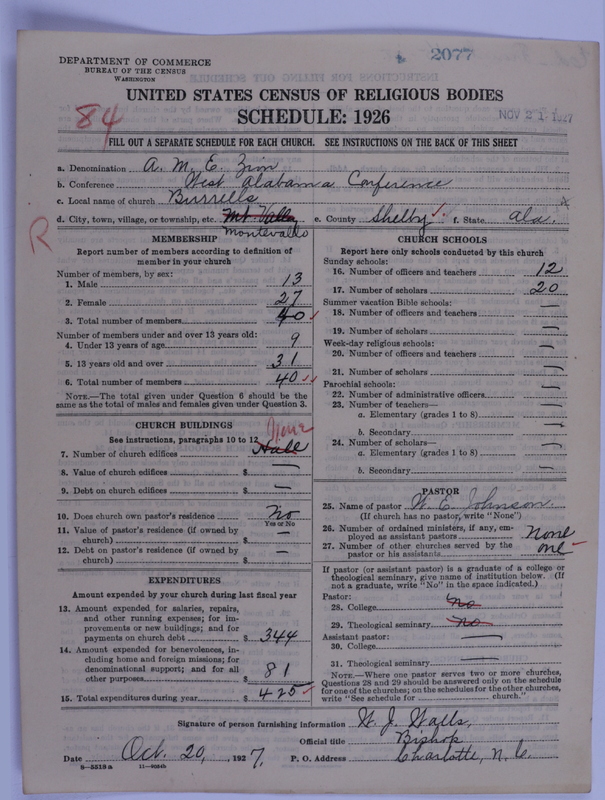 2077
DEPARTMENT OF COMMERCE
BUREAU OF THE CENSUS
WASHINGTON
UNITED STATES CENSUS OF RELIGIOUS BODIES
SCHEDULE: 1926
84
NOV 21 1927
FILL OUT A SEPARATE SCHEDULE FOR EACH CHURCH. SEE INSTRUCTIONS ON THE BACK OF THIS SHEET
a. Denomination A. M. E. Zion
b. Conference West Alabama Conference
c. Local name of church Burrells
d. City, town, village, or township, etc. Mt Valla Montevallo e. County Shelby f. State Ala.
R
MEMBERSHIP
Report number of members according to definition of
member in your church
Number of members, by sex:
1. Male 13
2. Female 27
3. Total number of members 40
Number of members under and over 13 years old:
4. Under 13 years of age 9
5. 13 years old and over 31
6. Total number of members 40
NOTE.—The total given under Question 6 should be the
same as the total of males and females given under Question 3.
CHURCH BUILDINGS
See instructions, paragraphs 10 to 12
None
7. Number of church edifices Hall
8. Value of church edifices $ —
9. Debt on church edifices $ —
10. Does church own pastor's residence? No
Yes or No
11. Value of pastor's residence (if owned by
church) $ —
12. Debt on pastor's residence (if owned by
church) $ —
EXPENDITURES
Amount expended by your church during last fiscal year
13. Amount expended for salaries, repairs,
and other running expenses; for im-
provements or new buildings; and for
payments on church debt $ 344
14. Amount expended for benevolences, in-
cluding home and foreign missions; for
denominational support; and for all
other purposes $ 81
15. Total expenditures during year $ 425
CHURCH SCHOOLS
Report here only schools conducted by this church
Sunday schools:
16. Number of officers and teachers 12
17. Number of scholars 20
Summer vacation Bible schools:
18. Number of officers and teachers —
19. Number of scholars —
Week-day religious schools:
20. Number of officers and teachers —
21. Number of scholars —
Parochial schools:
22. Number of administrative officers —
23. Number of teachers—
a. Elementary (grades 1 to 8) —
b. Secondary —
24. Number of scholars—
a. Elementary (grades 1 to 8) —
b. Secondary —
PASTOR
25. Name of pastor W. E. Johnson
(If church has no pastor, write "None")
26. Number of ordained ministers, if any, em-
ployed as assistant pastors None
27. Number of other churches served by the
pastor or his assistants one
If pastor (or assistant pastor) is a graduate of a college or
theological seminary, give name of institution below. (If
not a graduate, write "No" in the space indicated.)
Pastor:
28. College No
29. Theological seminary No
Assistant pastor:
30. College —
31. Theological seminary —
NOTE.—Where one pastor serves two or more churches,
Questions 28 and 29 should be answered only on the schedule
for one of the churches; on the schedules for the other churches,
write "See schedule for church."
Signature of person furnishing information W. J. Walls,
Official title Bishop
Date Oct. 20, 1927. P. O. Address Charlotte, N. C.
8—5518a